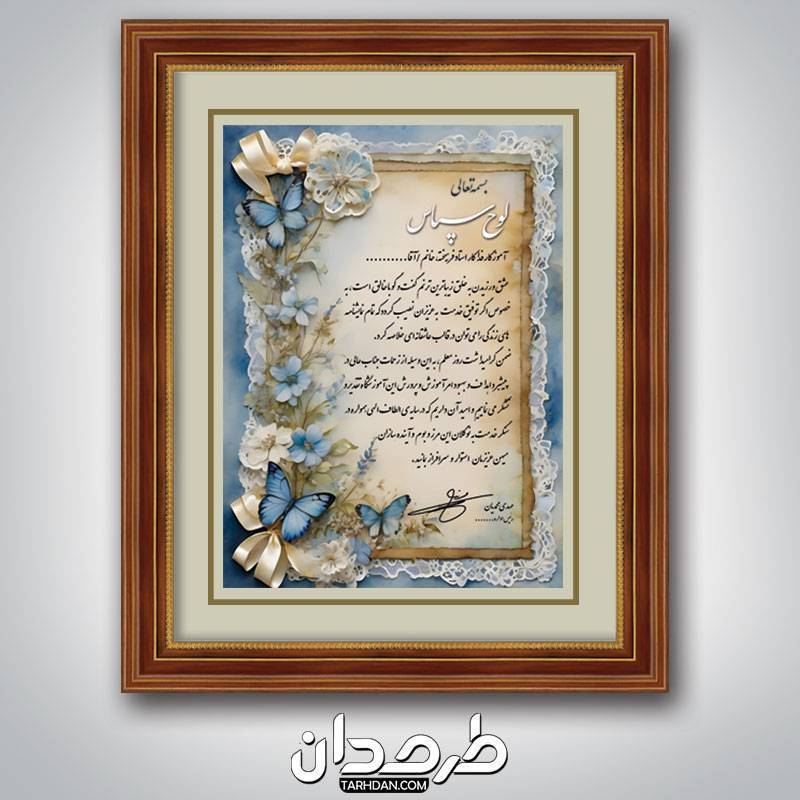 بسمه تعالی
لوح سپاس
آموزگار فداکار استاد فرهیخته، خانم / آقا..........
عشق ورزیدن به خلق زیباترین ترنم گفت و گو با خالق است، به
خصوص اگر توفیق خدمت به عزیزان نصیب گردد که تمام نمایشنامه
های زندگی را می توان در قالب عاشقانه ای خلاصه کرد.
ضمن گرامیداشت روز معلم، به این وسیله از زحمات جناب عالی در
پیشبرد اهداف و بهبود امر آموزش و پرورش این آموزشگاه تقدیر و
تشکر می نماییم و امید آن داریم که در سایه ی الطاف الهی همواره در
سنگر خدمت به نوگلان این مرز و بوم و آینده سازان
میهن عزیزمان استوار و سرافراز بمانید.
مهدی محمدیان
رییس اداره.......
طرحدان
TARHDAN.COM